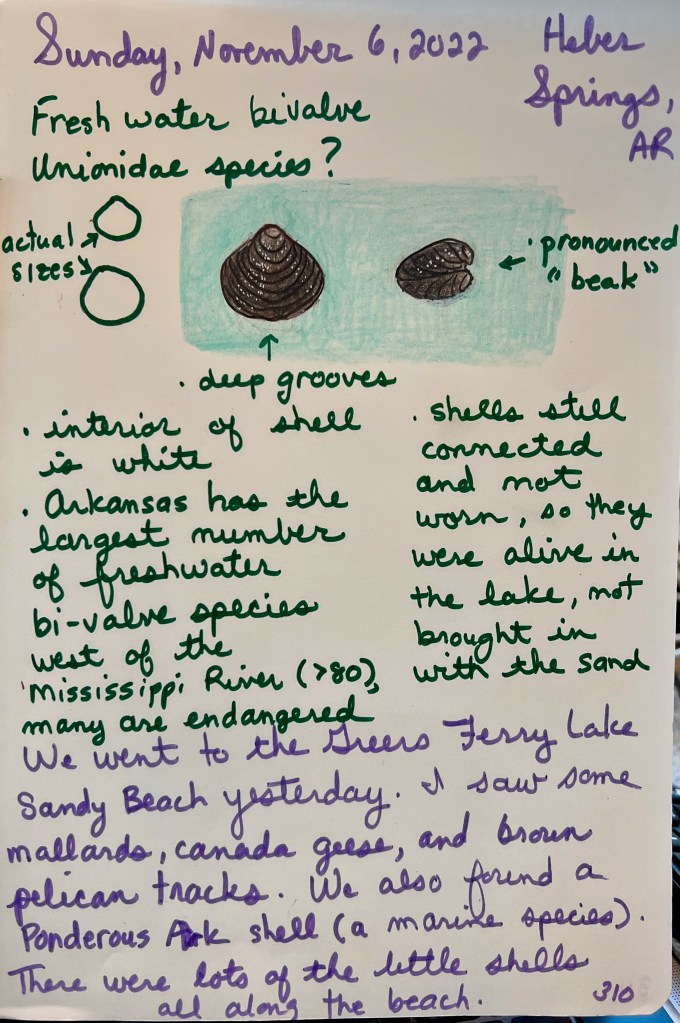 Sunday, November 6, 2022
Heber
Springs,
AR
Fresh water bivalve
Unionidae species?
actual
sizes
· pronounced
"beak"
· deep grooves
· interior of shell
is white
· Arkansas has the
largest number
of freshwater
bi-valve species
west of the
Mississippi River (>80),
many are endangered
· shells still
connected
and not
worn, so they
were alive in
the lake, not
brought in
with the sand
We went to the Greers Ferry Lake
Sandy Beach yesterday. I saw some
mallards, canada geese, and brown
pelican tracks. We also found a
Ponderous Ark shell (a marine species).
There were lots of the little shells
all along the beach.
310